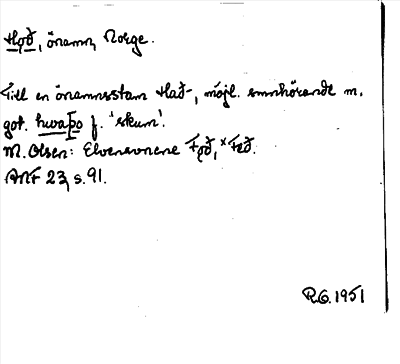 Hǫð, önamn, Norge.
Till en önamnsstam Hað-, möjl. smnhörande m.
got. hwaþo f. 'skum'.
M. Olsen: Elvenavnene Fǫð, *Fað.
ANF 23, s. 91.
R.G. 1951